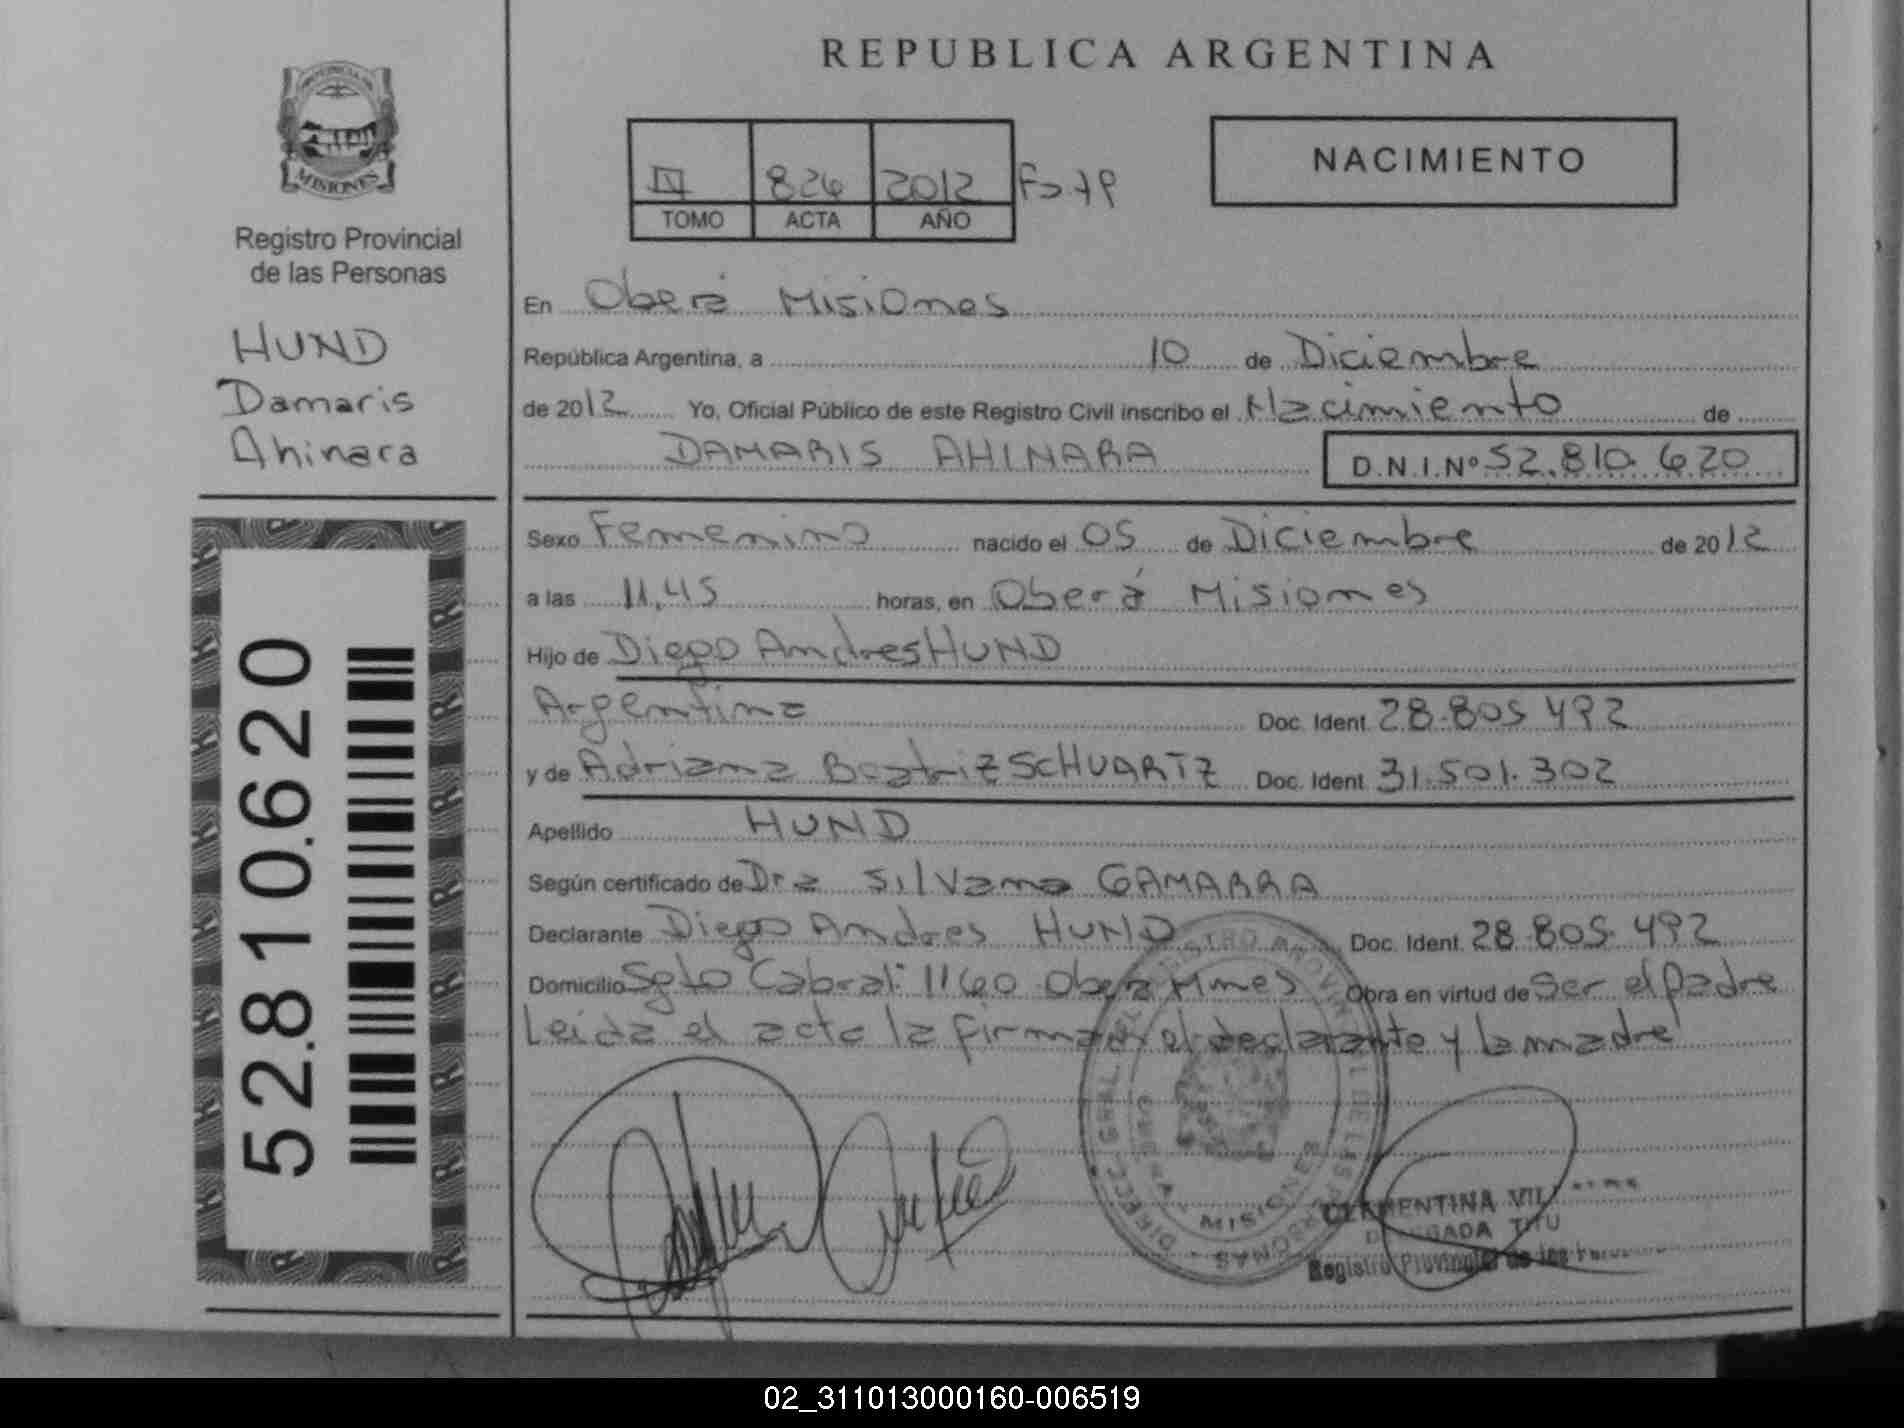 REPUBLICA ARGENTINA
PROVINCIA DE
MISIONES
Registro Provincial
de las Personas
HUND
Damaris
Ahinara
52.810.620
IV 826 2012 Fo 79
TOMO ACTA AÑO
NACIMIENTO
En Oberá Misiones
República Argentina, a 10 de Diciembre
de 2012 Yo, Oficial Público de este Registro Civil inscribo el Nacimiento de
DAMARIS AHINARA D.N.I.Nº 52.810.620
Sexo Femenino nacido el 05 de Diciembre de 2012
a las 11,45 horas, en Oberá Misiones
Hijo de Diego Andres HUND
Argentina Doc. Ident. 28.805.492
y de Adriana Beatriz SCHUARTZ Doc. Ident. 31.501.302
Apellido HUND
Según certificado de Dra Silvana GAMARRA
Declarante Diego Andres HUND Doc. Ident. 28.805.492
Domicilio Sgto Cabral 1160 Obera Mnes Obra en virtud de Ser el Padre
Leida el acta la firman el declarante y la madre
MISIONES
CLEMENTINA
Registro Provincial de las
02_311013000160-006519